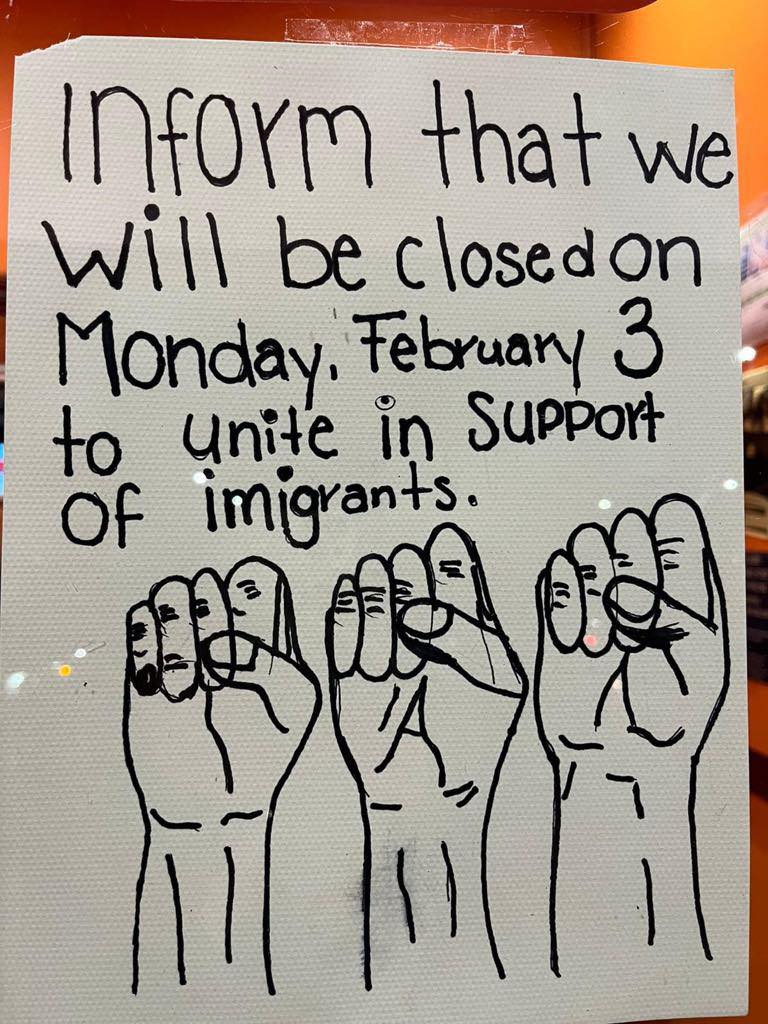 Inform that we
will be closed on
Monday, February 3
to unite in support
of imigrants.